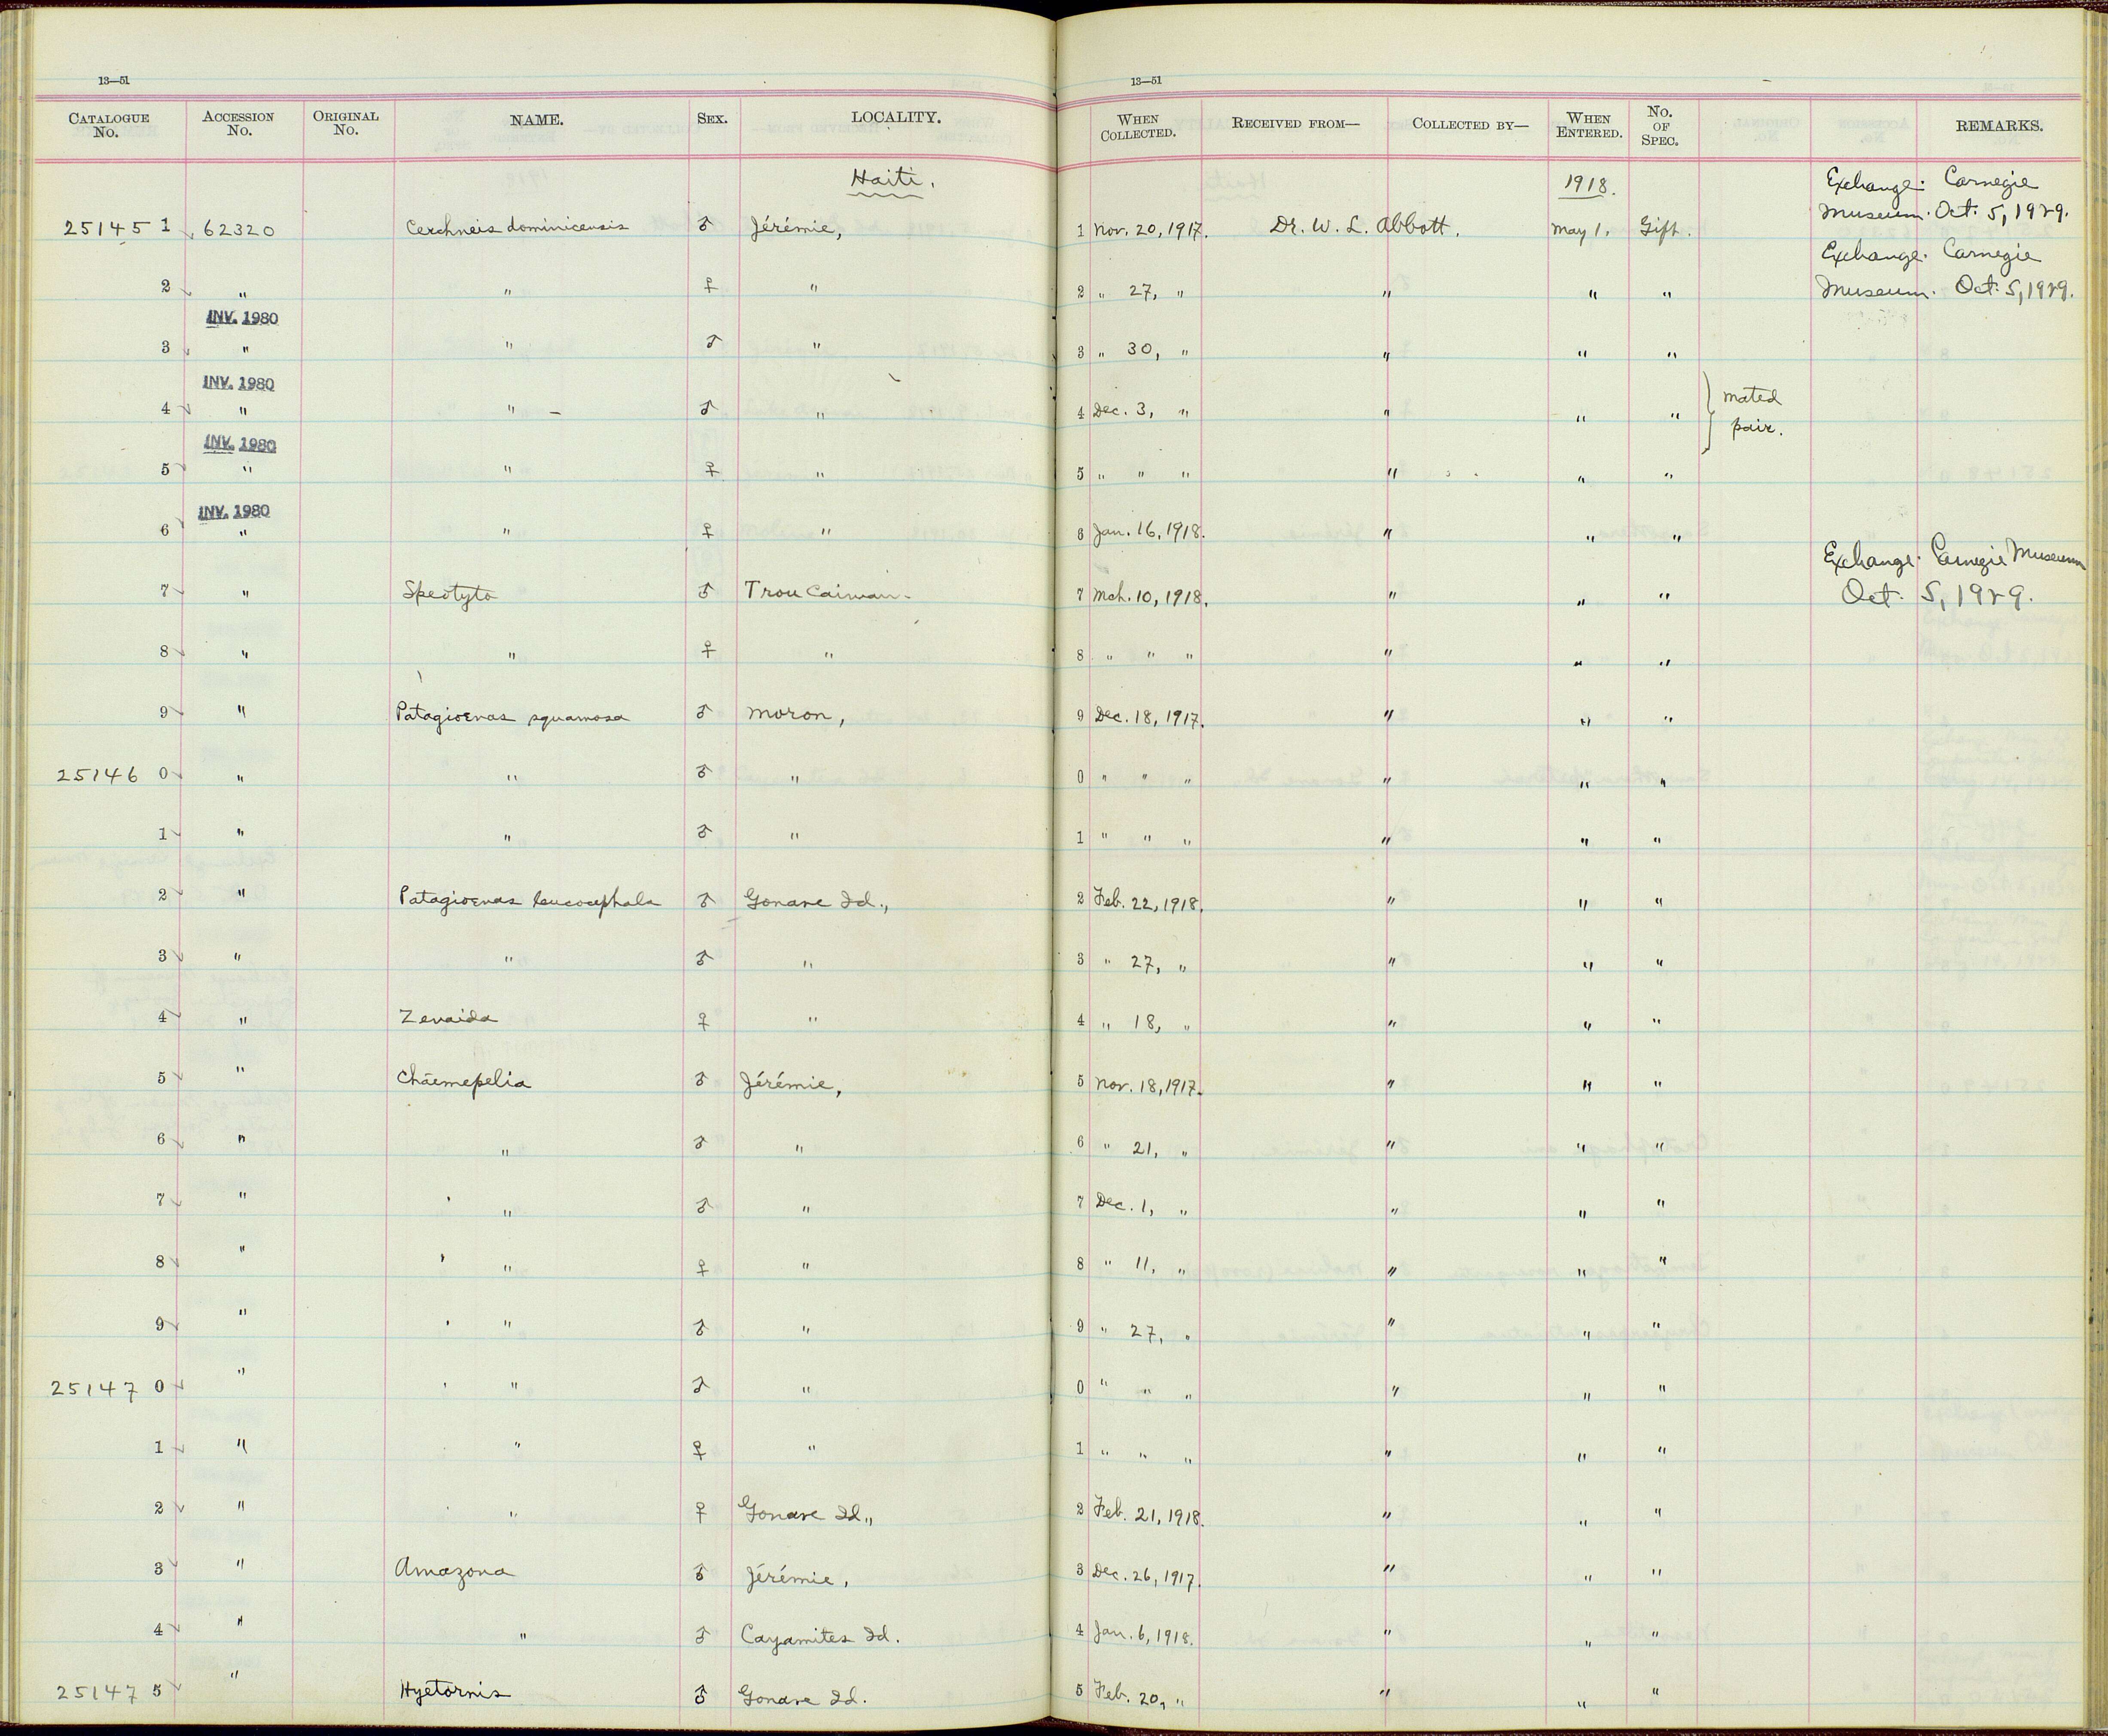 13—51 13—51
CATALOGUE No. ACCESSION No. ORIGINAL No. NAME. SEX. LOCALITY. WHEN COLLECTED. RECEIVED FROM— COLLECTED BY— WHEN ENTERED. No. OF SPEC. REMARKS.
Haiti. 1918. Exchange. Carnegie
Museum. Oct. 5, 1929.
25145 1 62320 Cerchneis dominicensis ♂ Jérémie, 1 Nov. 20, 1917. Dr. W. L. Abbott. May 1. Gift.
Exchange. Carnegie
2 " " ♀ " 2 " 27, " " " " Museum. Oct. 5, 1929.
INV. 1980
3 " " ♂ " 3 " 30, " " " "
INV. 1980
4 " " — ♂ " 4 Dec. 3, " " " " mated
pair.
INV. 1980
5 " " ♀ " 5 " " " " " "
INV. 1980
6 " " ♀ " 6 Jan. 16, 1918. " " "
Exchange. Carnegie Museum
7 " Speotyto ♂ Trou Caiman. 7 Mch. 10, 1918. " " " Oct. 5, 1929.
8 " " ♀ " 8 " " " " " "
9 " Patagioenas squamosa ♂ Moron, 9 Dec. 18, 1917. " " "
25146 0 " " ♂ " 0 " " " " " "
1 " " ♂ " 1 " " " " " "
2 " Patagioenas leucocephala ♂ Gonave Id., 2 Feb. 22, 1918. " " "
3 " " ♂ " 3 " 27, " " " "
4 " Zenaida ♀ " 4 " 18, " " " "
5 " Chaemepelia ♂ Jérémie, 5 Nov. 18, 1917. " " "
6 " " ♂ " 6 " 21, " " " "
7 " " ♂ " 7 Dec. 1, " " " "
8 " " ♀ " 8 " 11, " " " "
9 " " ♂ " 9 " 27, " " " "
25147 0 " " ♂ " 0 " " " " " "
1 " " ♀ " 1 " " " " " "
2 " " ♀ Gonave Id., 2 Feb. 21, 1918. " " "
3 " Amazona ♂ Jérémie, 3 Dec. 26, 1917. " " "
4 " " ♂ Cayamites Id. 4 Jan. 6, 1918. " " "
25147 5 " Hyetornis ♂ Gonave Id. 5 Feb. 20, " " " "